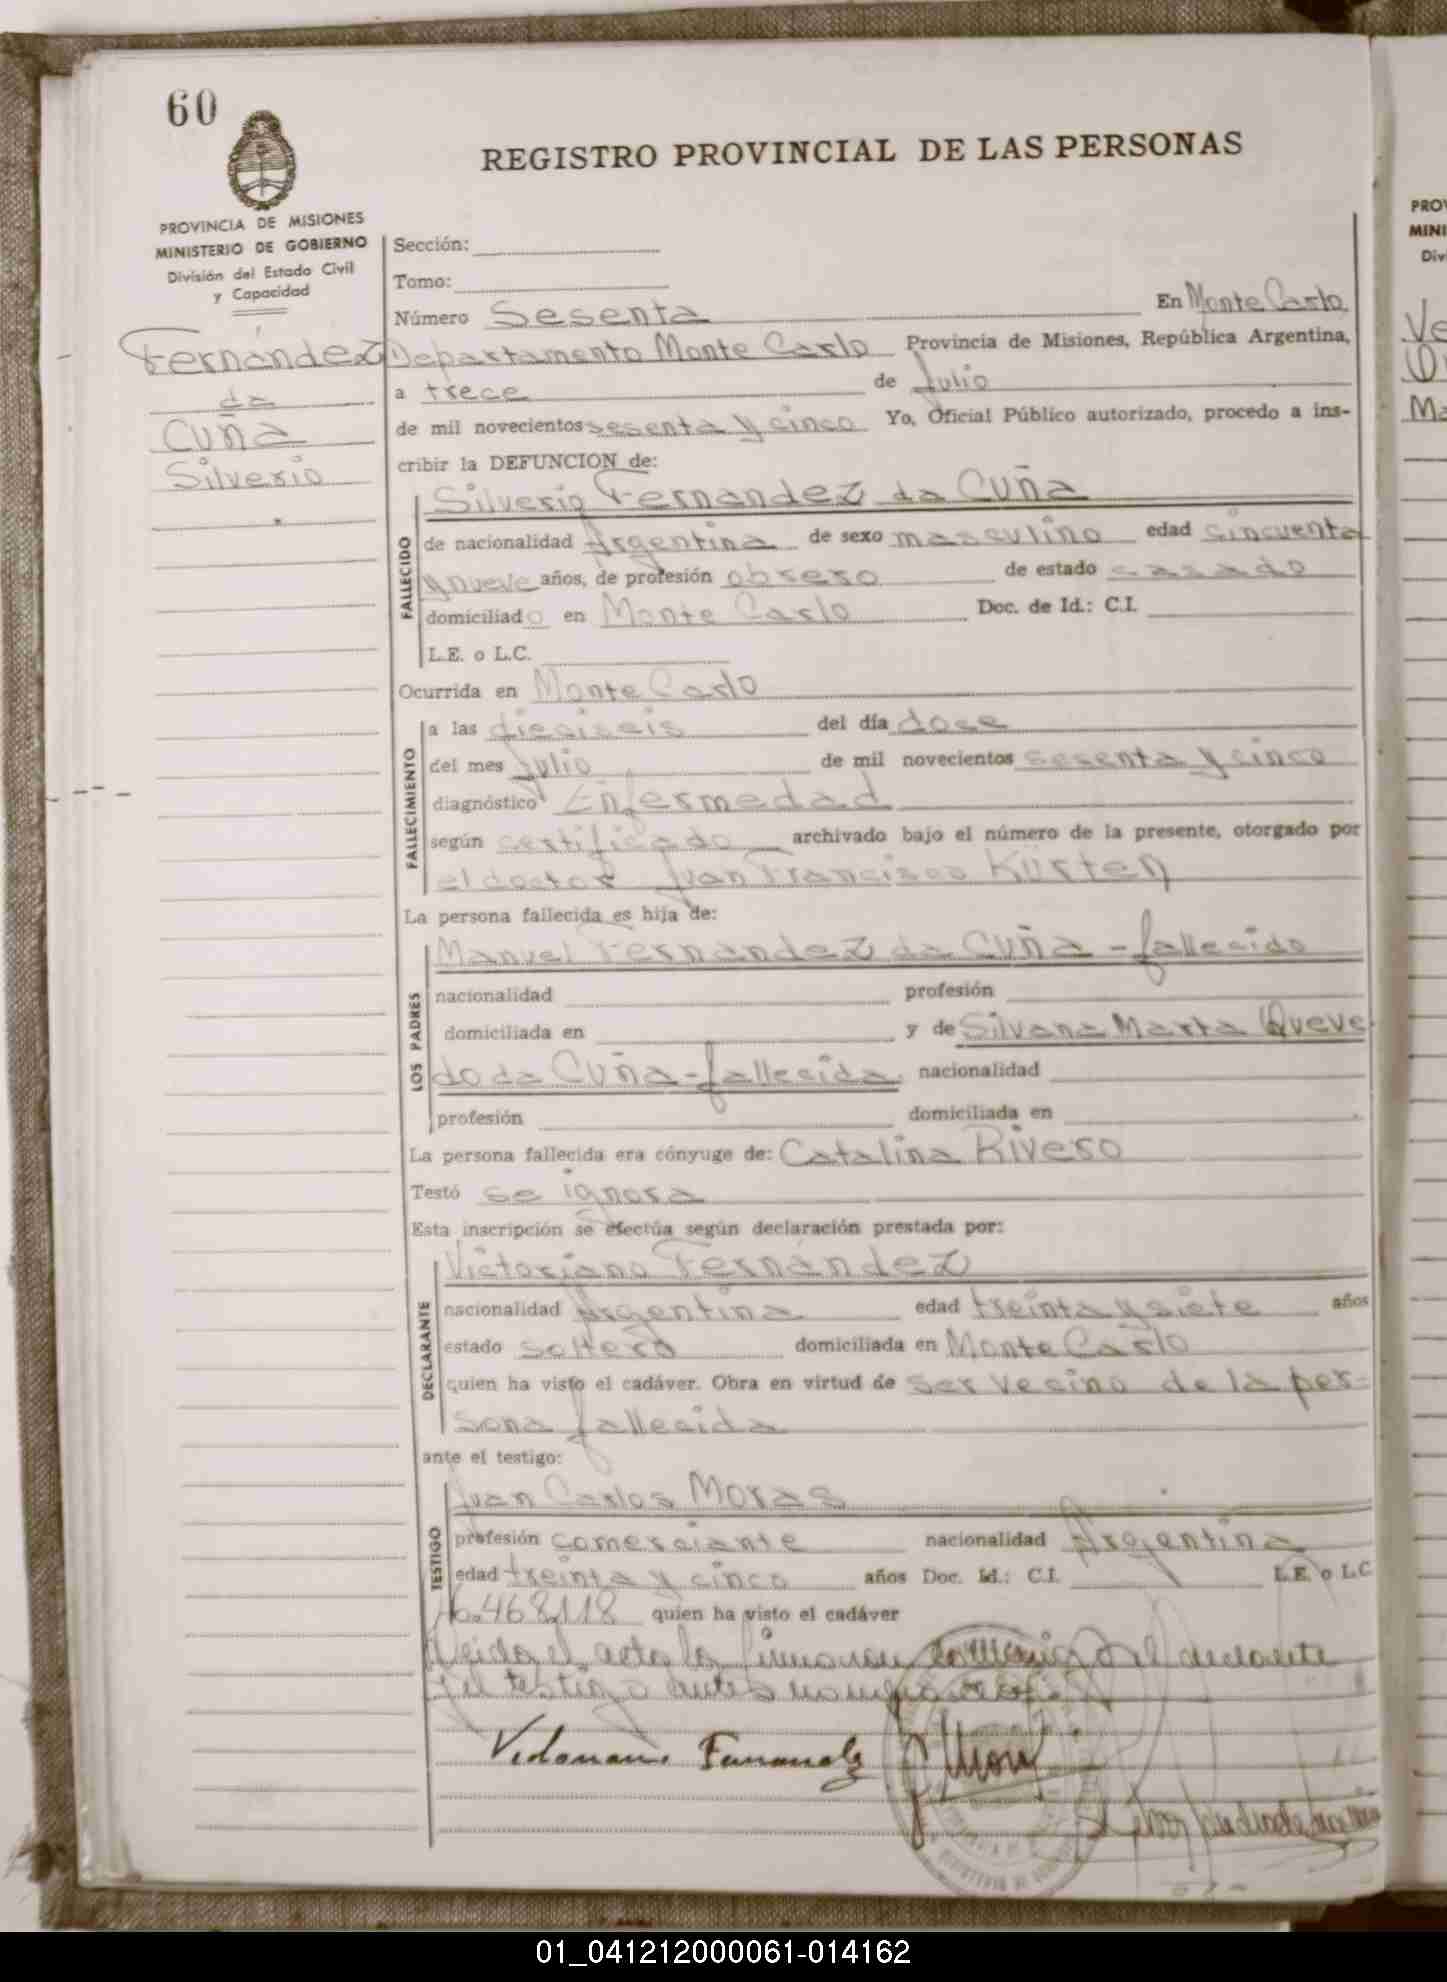 60
REGISTRO PROVINCIAL DE LAS PERSONAS
PROVINCIA DE MISIONES
MINISTERIO DE GOBIERNO
División del Estado Civil
y Capacidad
Fernández
da
Cuña
Silverio
Sección:
Tomo:
Número Sesenta En Monte Carlo,
Departamento Monte Carlo Provincia de Misiones, República Argentina,
a trece de Julio
de mil novecientos sesenta y cinco Yo, Oficial Público autorizado, procedo a ins-
cribir la DEFUNCION de:
FALLECIDO
Silverio Fernandez da Cuña
de nacionalidad Argentina de sexo masculino edad cincuenta
y nueve años, de profesión obrero de estado casado
domiciliado en Monte Carlo Doc. de Id.: C.I.
L.E. o L.C.
Ocurrida en Monte Carlo
FALLECIMIENTO
a las dieciseis del día doce
del mes Julio de mil novecientos sesenta y cinco
diagnóstico Enfermedad
según certificado archivado bajo el número de la presente, otorgado por
el doctor Juan Francisco Kürten
La persona fallecida es hija de:
LOS PADRES
Manuel Fernández da Cuña - fallecido
nacionalidad profesión
domiciliada en y de Silvana Marta Queve
do da Cuña - fallecida nacionalidad
profesión domiciliada en
La persona fallecida era cónyuge de: Catalina Rivero
Testó se ignora
Esta inscripción se efectúa según declaración prestada por:
DECLARANTE
Victoriano Fernández
nacionalidad Argentina edad treinta y siete años
estado soltero domiciliada en Monte Carlo
quien ha visto el cadáver. Obra en virtud de ser vecino de la per-
sona fallecida
ante el testigo:
TESTIGO
Juan Carlos Moras
profesión comerciante nacionalidad Argentina
edad treinta y cinco años Doc. Id.: C.I. L.E. o L.C
16.468.118 quien ha visto el cadáver
Leida el acta la firmaron conmigo el declarante
y el testigo antes
01_041212000061-014162